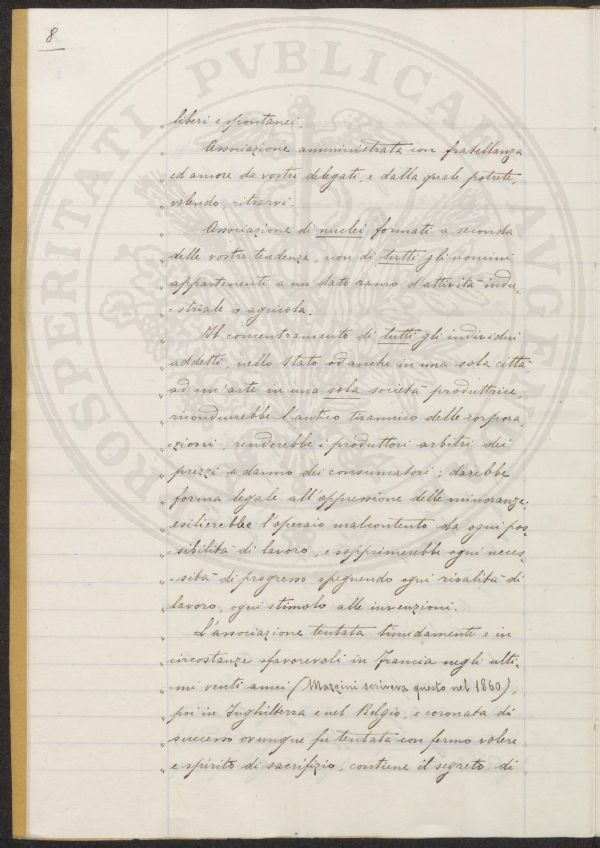 8
PROSPERITATI PVBLICAE AVGENDAE
" liberi e spontanei.
" Associazione amministrata con fratellanza
" ed amore da vostri delegati, e dalla quale potrete,
" volendo, ritrarvi.
" Associazione di nuclei formati a seconda
" delle vostre tendenze, non di tutti gli uomini
" appartenenti a un dato ramo d'attività indu-
" -striale o agricola.
" Il concentramento di tutti gli individui
" addetti, nello Stato od anche in una sola città
" ad un'arte in una sola società produttrice,
" ricondurrebbe l'antico tirannico delle corpora-
" -zioni, renderebbe i produttori arbitri dei
" prezzi a danno dei consumatori; darebbe
" forma legale all'oppressione delle minoranze;
" esilierebbe l'operaio malcontento da ogni pos-
" -sibilità di lavoro, e sopprimerebbe ogni neces-
" -sità di progresso spegnendo ogni rivalità di
" lavoro, ogni stimolo alle invenzioni.
" L'associazione tentata timidamente e in
" circostanze sfavorevoli in Francia negli ulti-
" -mi venti anni (Mazzini scriveva questo nel 1860),
" poi in Inghilterra e nel Belgio, e coronata di
" successo ovunque fu tentata con fermo volere
" e spirito di sacrifizio, contiene il segreto di